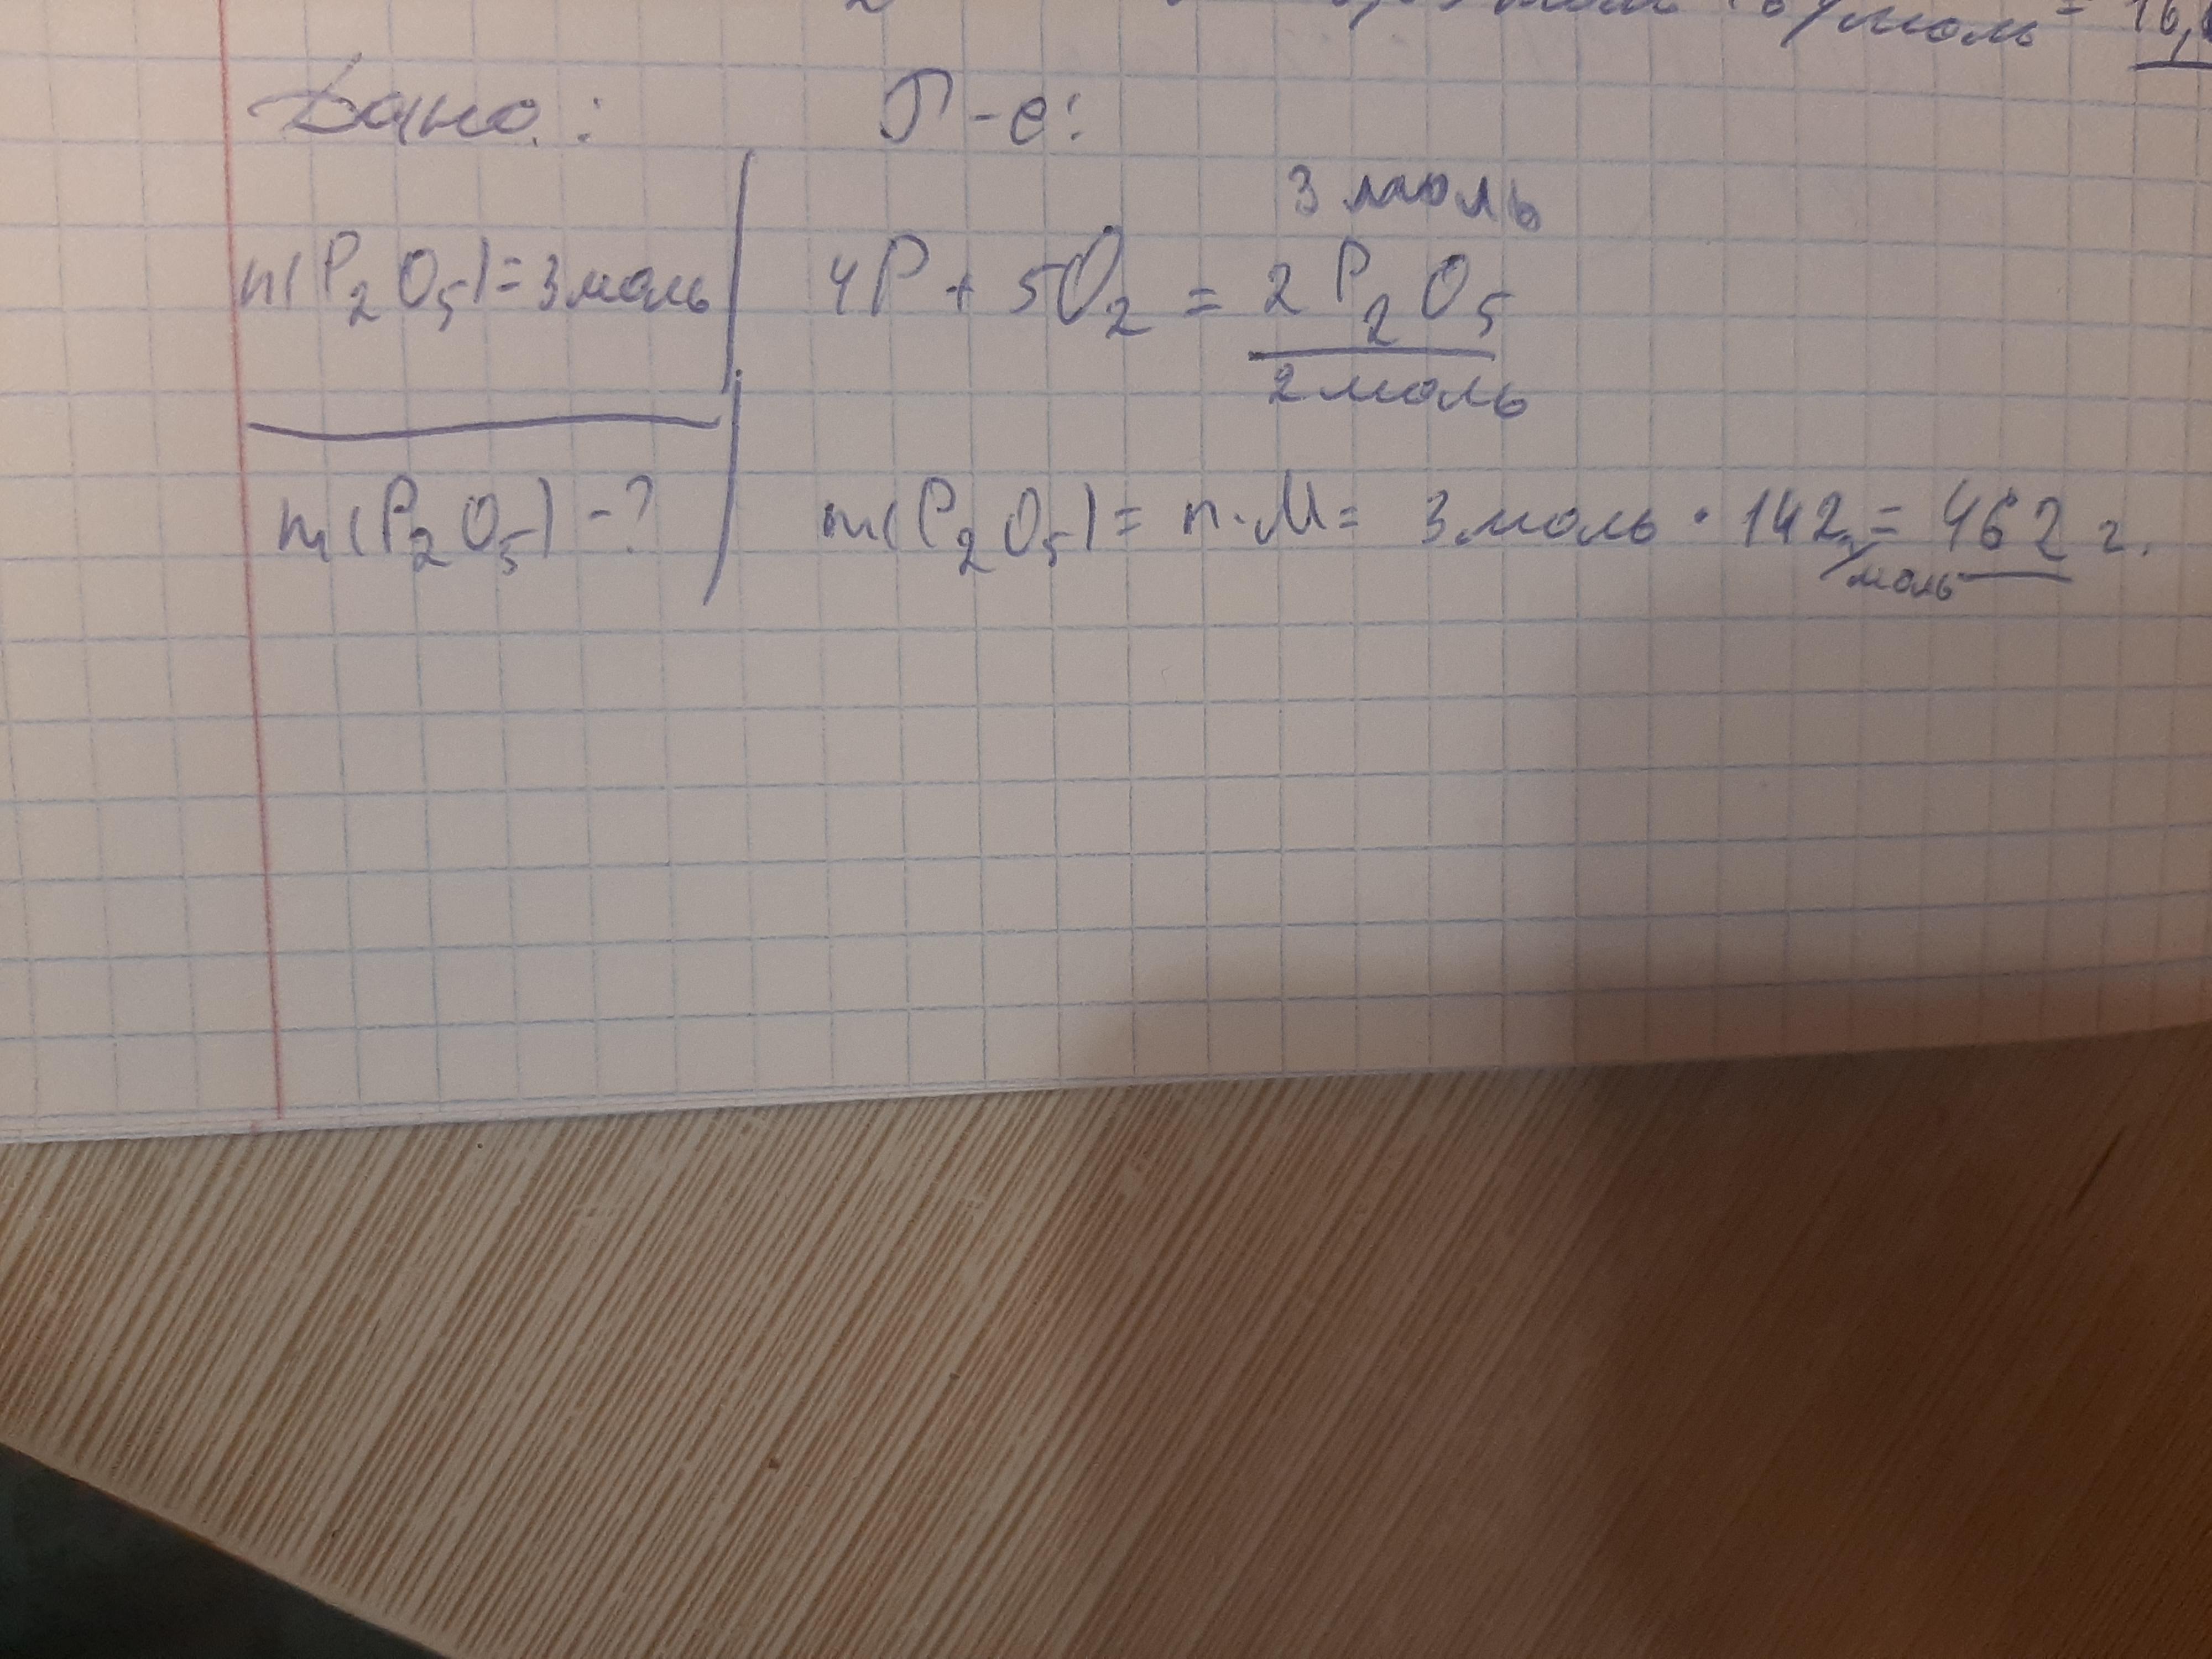 моль = 16,
Дано: Р-е:
3 моль
n(P₂O₅)=3моль 4P + 5O₂ = 2P₂O₅
2 моль
m(P₂O₅) - ? m(P₂O₅) = n·M = 3 моль · 142 г/моль = 462 г.